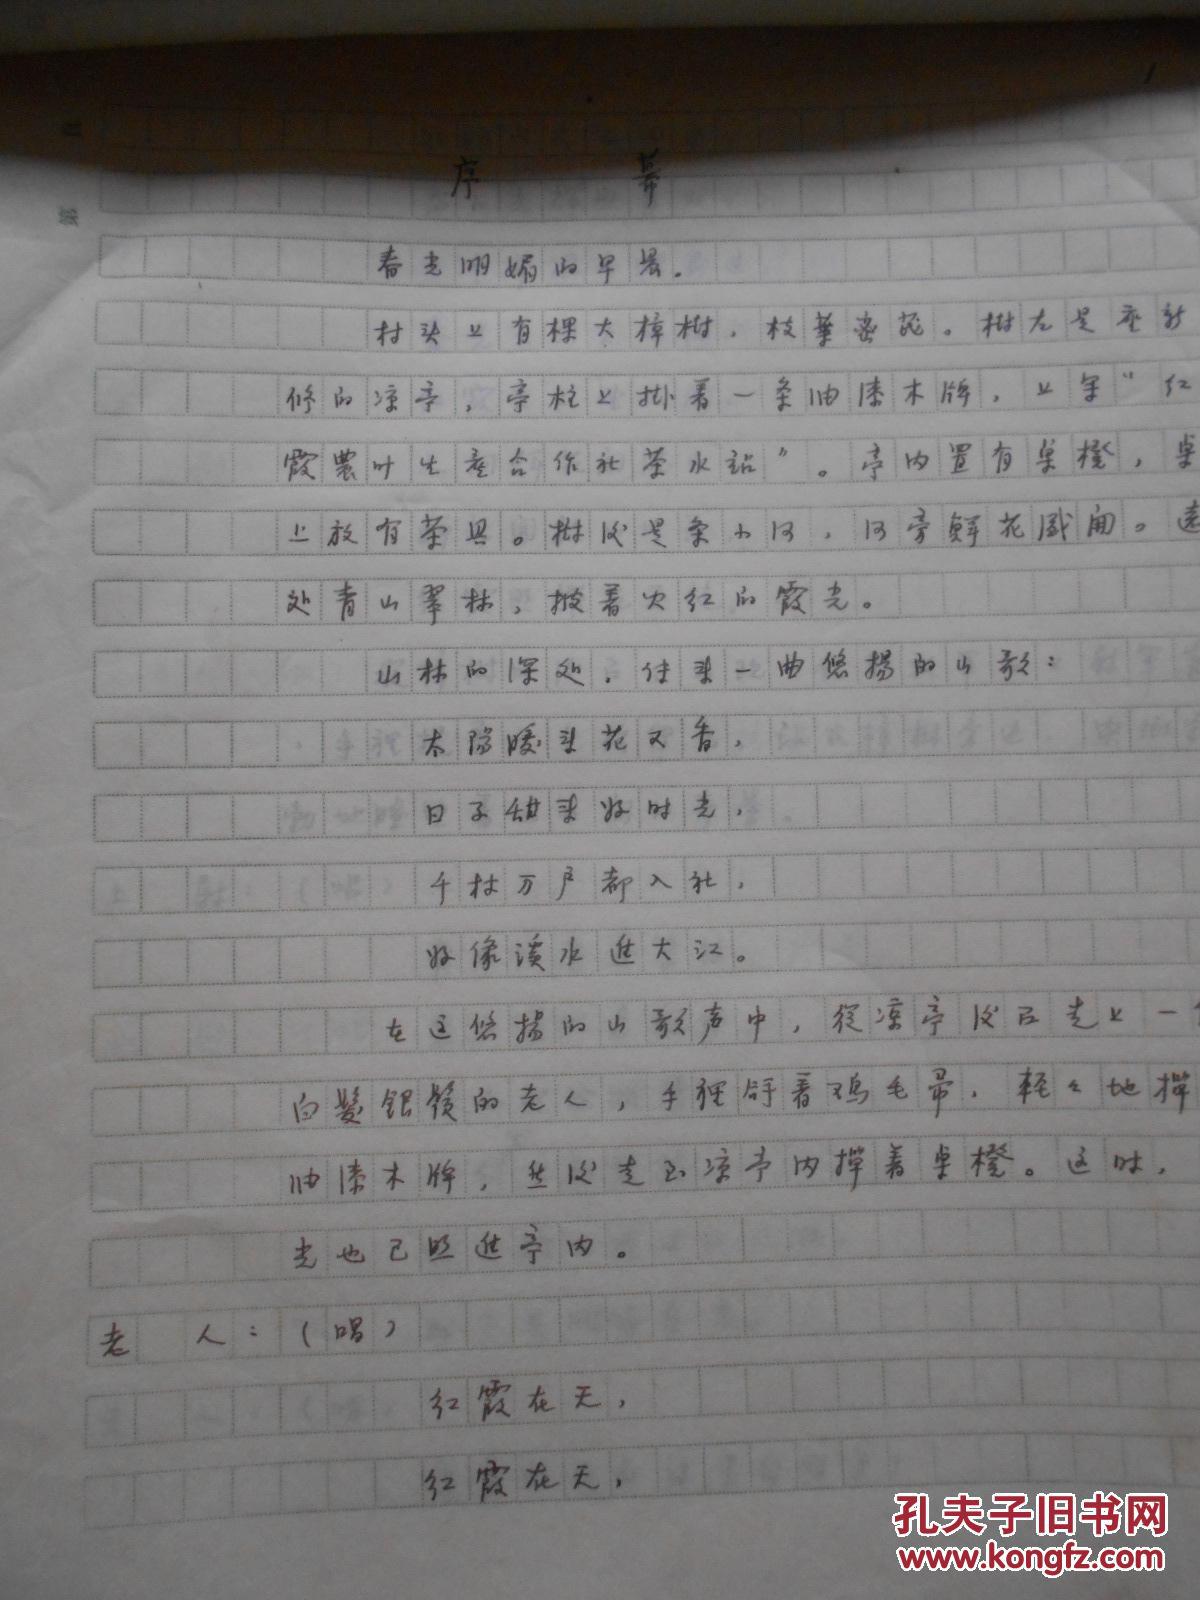 序 幕
春光明媚的早晨。
村头上有棵大樟树,枝葉密茂。树左是座新
修的凉亭,亭柱上掛着一条油漆木牌,上写"红
霞農叶生産合作社茶水站"。亭内置有桌橙,桌
上放有茶具。树後是条小河,河旁鮮花盛開。远
处青山翠林,披着火红的霞光。
山林的深处,传来一曲悠揚的山歌:
太陽暖来花又香,
日子甜来好时光,
千村万户都入社,
好像溪水進大江。
在这悠揚的山歌声中,從凉亭後面走上一个
白髮銀鬚的老人,手裡拿着鸡毛帚,轻々地撣
油漆木牌,然後走到凉亭内撣着桌橙。这时,
光也已照進亭内。
老 人:(唱)
红霞在天,
红霞在天,
孔夫子旧书网
www.kongfz.com